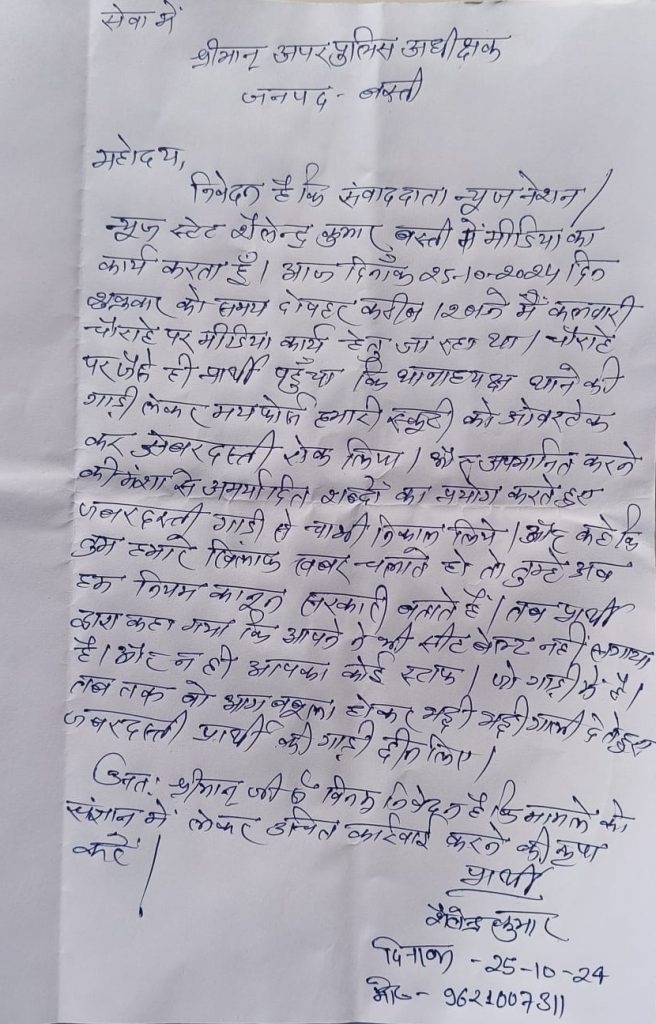 सेवा में
श्रीमान् अपर पुलिस अधीक्षक
जनपद - बस्ती
महोदय,
निवेदन है कि संवाददाता न्यूज नेशन /
न्यूज स्टेट शैलेन्द्र कुमार, बस्ती में मीडिया का
कार्य करता हूँ। आज दिनाँक 25-10-2024 दिन
शुक्रवार को समय दोपहर करीब 12 बजे मैं कलवारी
चौराहे पर मीडिया कार्य हेतु जा रहा था। चौराहे
पर जैसे ही प्रार्थी पहुँचा कि थानाध्यक्ष थाने की
गाड़ी लेकर मयफोर्स हमारी स्कूटी को ओवरटेक
कर जबरदस्ती रोक लिया। और अपमानित करने
की मंशा से अमर्यादित शब्दों का प्रयोग करते हुए
जबरदस्ती गाड़ी से चाभी निकाल लिये। और कहे कि
तुम हमारे खिलाफ खबर चलाते हो तो तुम्हे अब
हम नियम कानून सरकारी बताते हैं। तब प्रार्थी
द्वारा कहा गया कि आपने ने भी सीट बेल्ट नहीं लगाया
है। और न ही आपका कोई स्टाफ। जो गाड़ी में है।
तब तक वो आग बबूला होकर भद्दी भद्दी गाली देते हुए
जबरदस्ती प्रार्थी की गाड़ी छीन लिए।
अतः श्रीमान् जी से विनम्र निवेदन है कि मामले को
संज्ञान में लेकर उचित कार्रवाई करने की कृपा
करें।
प्रार्थी
शैलेन्द्र कुमार
दिनाक - 25-10-24
मो0 - 9621007311